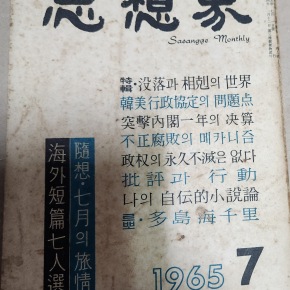 思想界
Sasangge Monthly
特輯·没落과 相剋의 世界
韓美行政協定의 問題点
突擊內閣一年의 決算
不正腐敗의 메카니즘
政权의 永久不滅은 없다
批評과 行動
나의 自伝的小說論
多島海千里
隨想·七月의 旅情
海外短篇七人選
1965 7